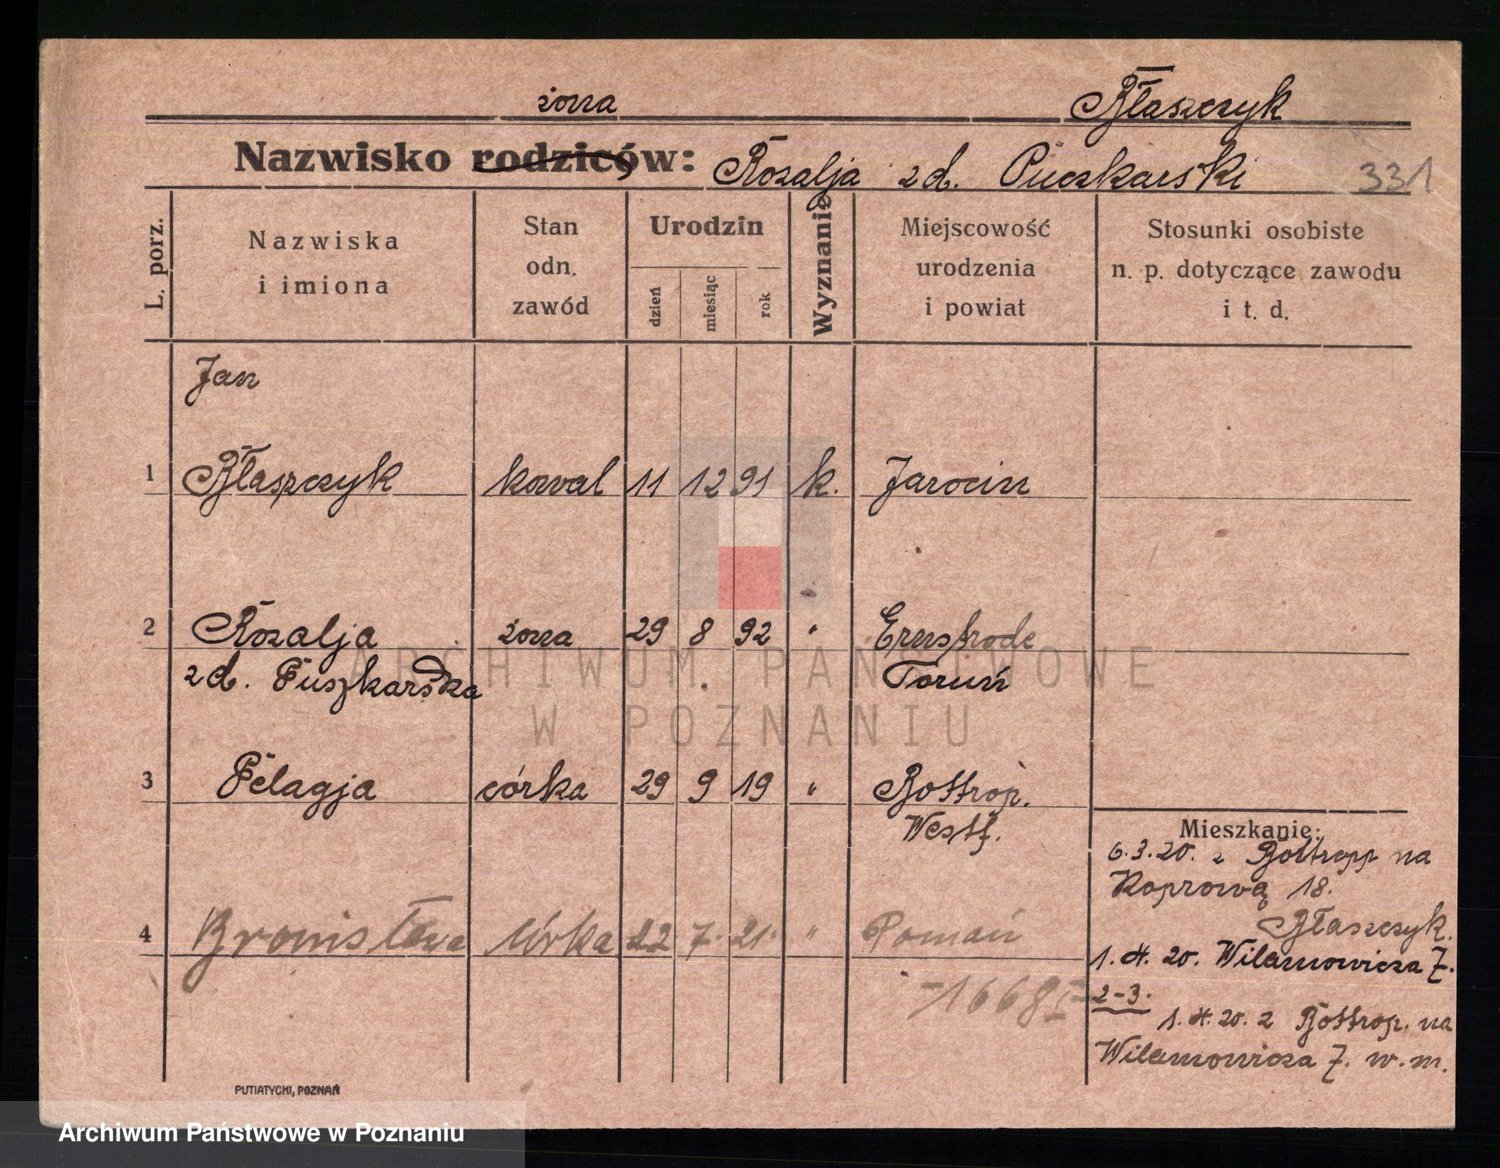 żona Błaszczyk
Nazwisko rodziców: Rozalja zd. Puczkarski 331
L. porz.
Nazwiska
i imiona
Stan
odn.
zawód
Urodzin
dzień miesiąc rok
Wyznanie
Miejscowość
urodzenia
i powiat
Stosunki osobiste
n. p. dotyczące zawodu
i t. d.
Jan
1 Błaszczyk kowal 11 12 91 k. Jarocin
2 Rozalja żona 29 8 92 " Ernstrode
zd. Puszkarska Toruń
3 Pelagja córka 29 9 19 " Bottrop.
Westf.
Mieszkanie:
6.3.20. z Bottropp na
Koprową 18.
Błaszczyk.
4 Bronisława córka 22 7. 21. "
1.4.20. Wilamowicza 7.
2-3.
1.4.20. z Bottrop. na
Wilamowicza 7. w. m.
PUTIATYCKI, POZNAŃ
ARCHIWUM PAŃSTWOWE
W POZNANIU
Archiwum Państwowe w Poznaniu